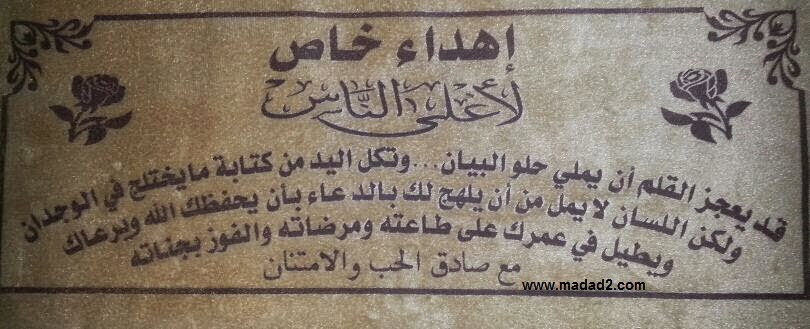 إهداء خاص
لأغلى النَّاس
قد يعجز القلم أن يملي حلو البيان...وتكل اليد من كتابة ما يختلج في الوجدان
ولكن اللسان لا يمل من أن يلهج لك بالدعاء بأن يحفظك الله ويرعاك
ويطيل في عمرك على طاعته ومرضاته والفوز بجناته
مع صادق الحب والامتنان
www.madad2.com